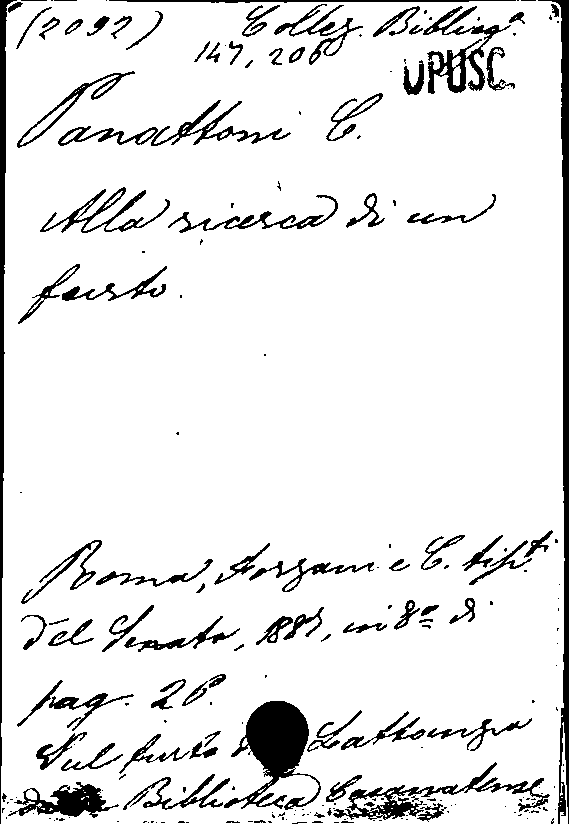 (2092) Collez. Bibliogª.
147, 206
OPUSC.
Panattoni C.
Alla ricerca di un
furto.
Roma, Forzani e C. tip.ti
del Senato, 1887, in 8º di
pag. 26.
Sul furto Lattanzio
Biblioteca Casanatense